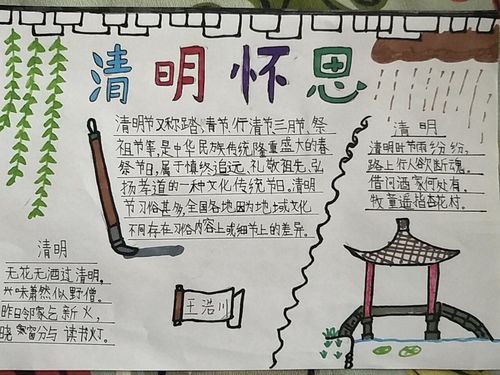 清明怀思
清明节又称踏青节、行清节、三月节、祭
祖节等,是中华民族传统隆重盛大的春
祭节日,属于慎终追远、礼敬祖先、弘
扬孝道的一种文化传统节日。清明
节习俗甚多,全国各地因为地域文化
不同存在习俗内容上或细节上的差异。
清明
清明时节雨纷纷,
路上行人欲断魂。
借问酒家何处有,
牧童遥指杏花村。
清明
无花无酒过清明,
兴味萧然似野僧。
昨日邻家乞新火,
晓窗分与读书灯。
王浩川